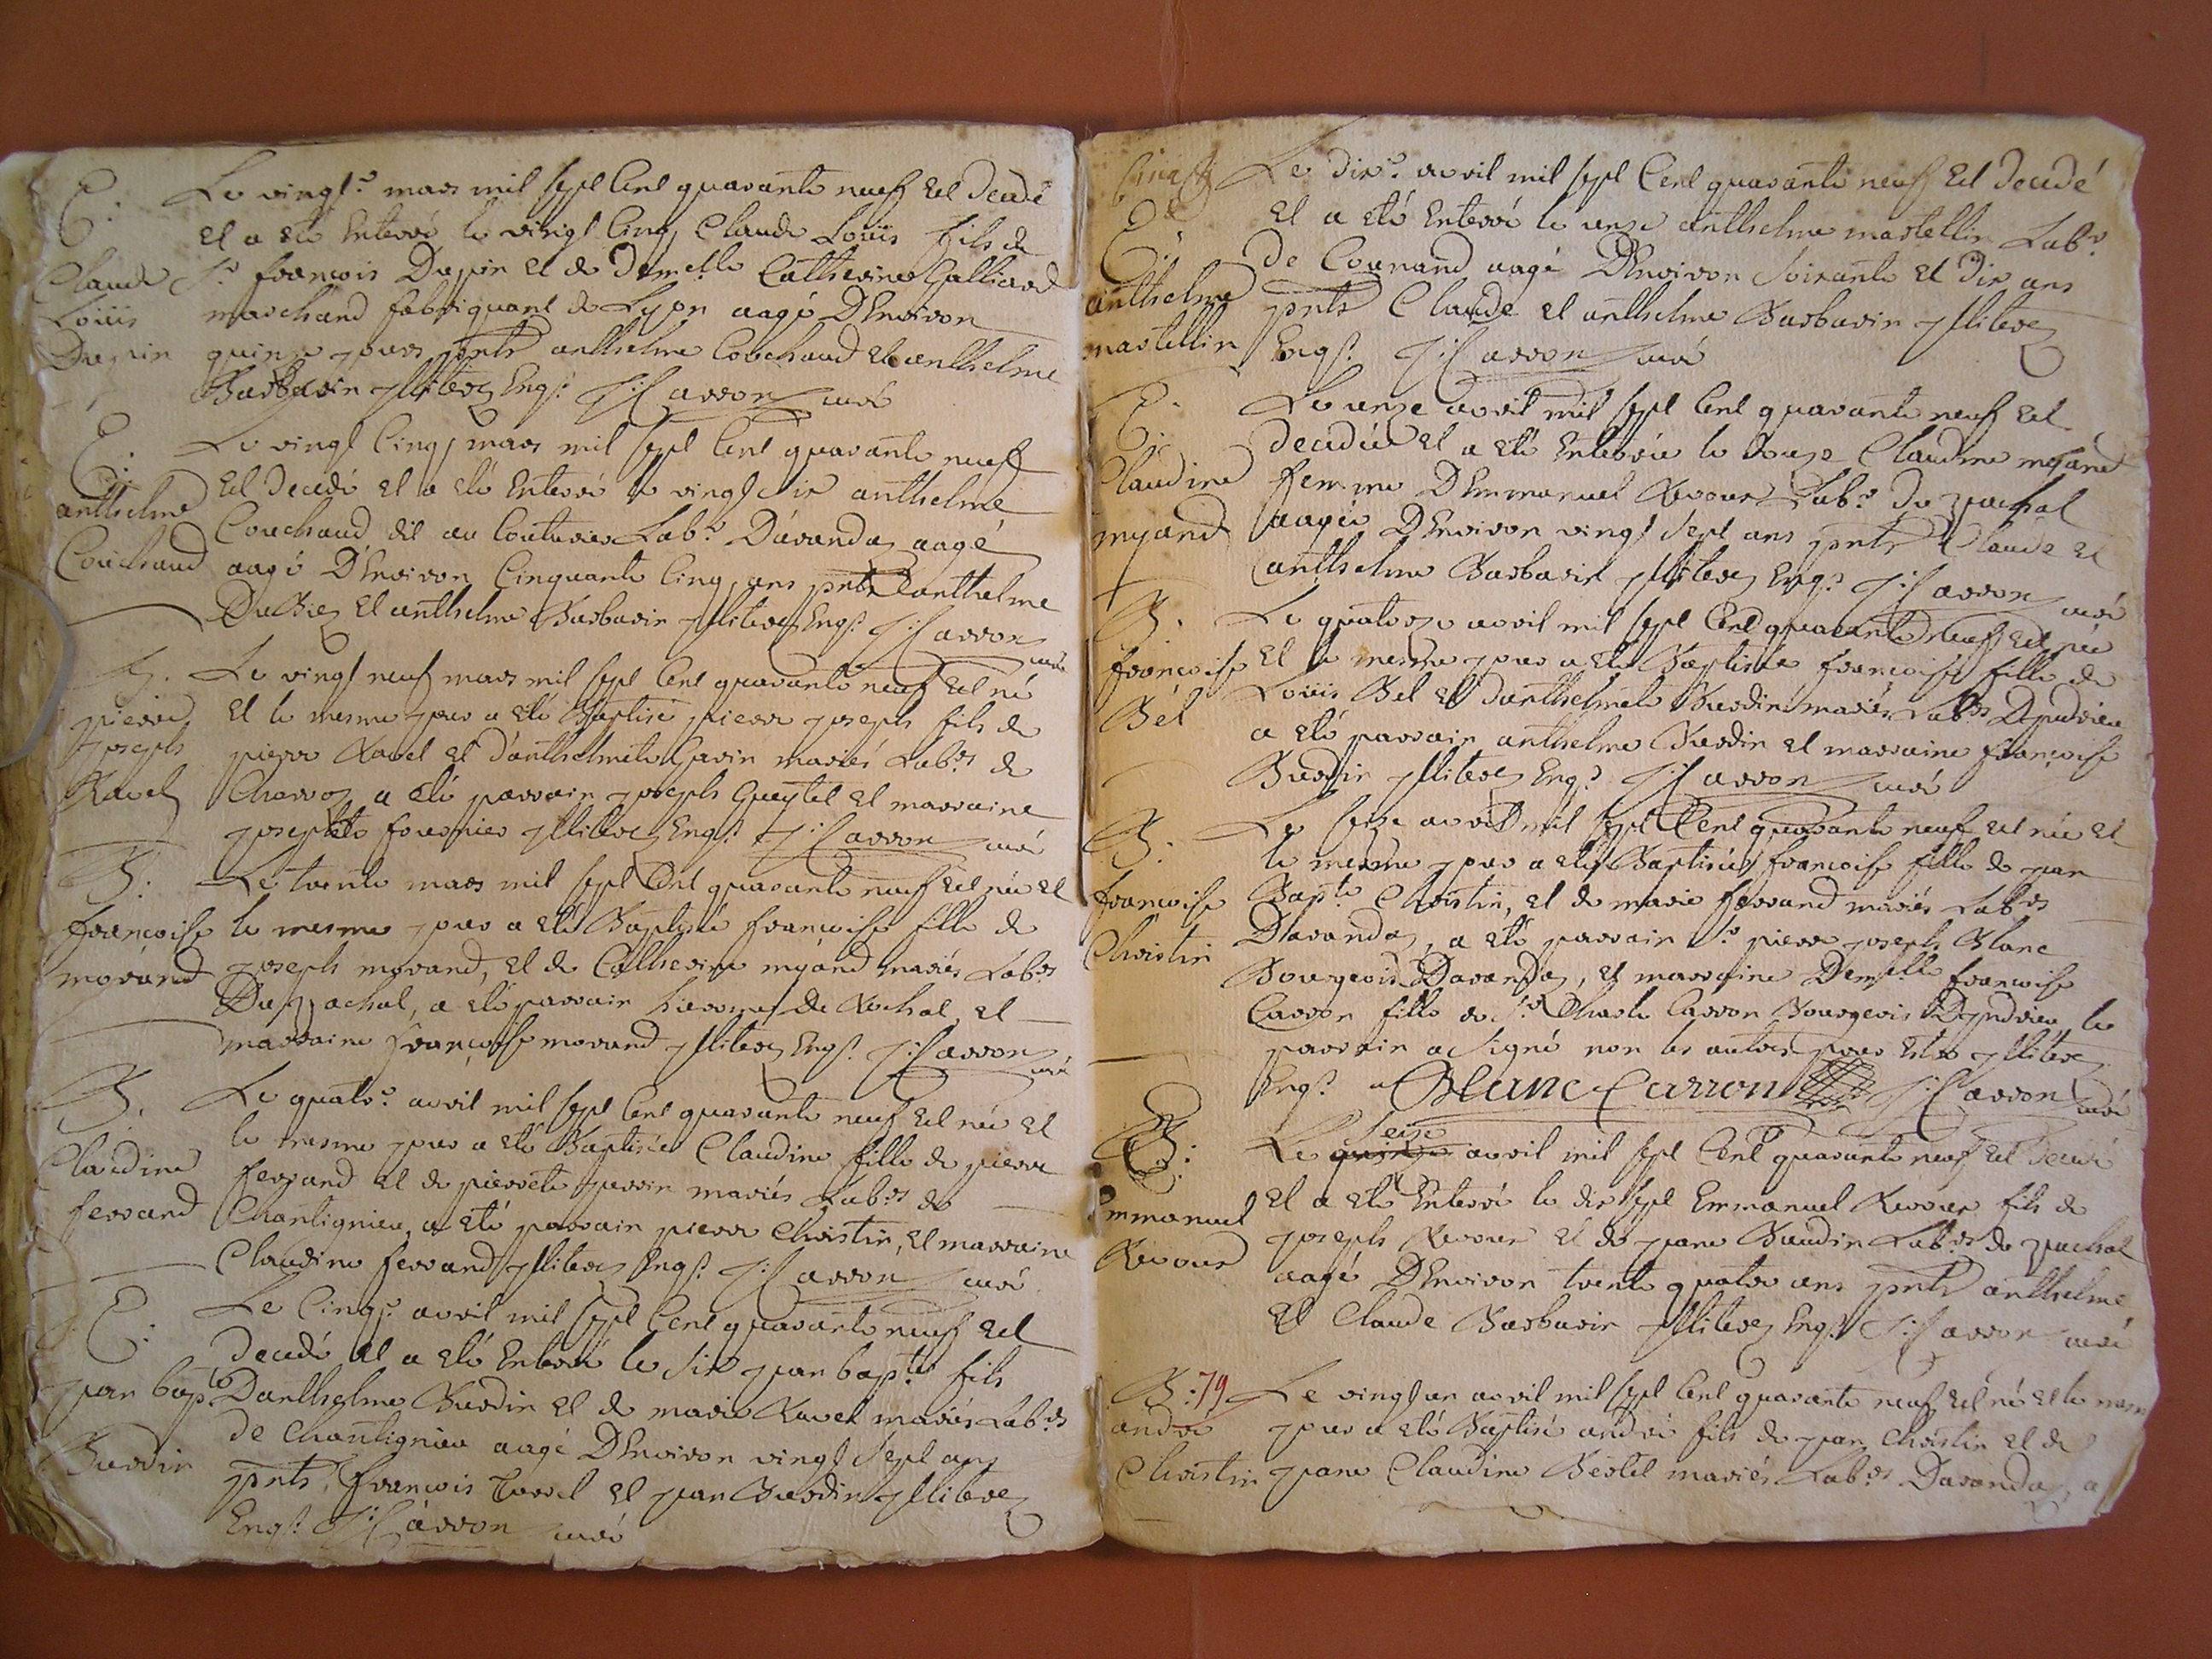 E.
Claude
Loüis
Dupin
Le vingt.e mars mil sept Cent quarante neuf Est decedé
Et a eté Enterré le vingt Cinq Claude Loüis fils de
S.r françois Dupin et de Demelle Catherine Galliard
marchand fabriquant de Lyon aagé D'Environ
quinze jours pnts anthelme Couchaud et anthelme
Barbarin jlliterez Enqs. J: Carron curé
E.
anthelme
Couchaud
Le vingt Cinq mars mil sept Cent quarante neuf
Est decedé et a eté Enterré le vingt six anthelme
Couchaud dit au Couturier Lab.r D'avanda aagé
aagé D'Environ Cinquante Cinq ans pnts anthelme
Dubiez et anthelme Barbarin jlliterez Enqs. J: Carron
curé
B.
pierre
joseph
Ravel
Le vingt neuf mars mil sept Cent quarante neuf Est né
Et le mesme jour a eté Baptisé pierre joseph fils de
pierre Ravel et d'anthelmete Gavin mariés Lab.rs de
Charroz a eté parrain joseph Gueytel et marraine
josephte fournier jlliterez Enqs. J: Carron curé
B.
françoise
morand
Le trente mars mil sept Cent quarante neuf Est née et
le mesme jour a eté Baptisée françoise fille de
joseph morand, et de Catherine myand mariés Lab.rs
Du pachal, a eté parrain hierome De Rochal, et
marraine françoise morand jlliterez Enqs. J: Carron
curé
B.
Claudine
ferrand
Le quatr.e avril mil sept Cent quarante neuf est née et
le mesme jour a eté Baptisée Claudine fille de pierre
ferrand et de pierrete perrin mariés Lab.rs de
Chantignieu, a eté parrain pierre Christin, et marraine
Claudine ferrand jlliterez Enqs. J: Carron curé
E.
jean bapt.
Burdin
Le Cinq.e avril mil sept Cent quarante neuf est
decedé et a eté Enterré le six jean bapt.te fils
D'anthelme Burdin et de marie Ravel mariés Lab.rs
de Chantignieu aagé D'Environ vingt sept ans
pnts. françois Carrel et jean Burdin jlliterez
Enqs. J: Carron curé
E.
anthelme
martellin
Le dix.e avril mil sept Cent quarante neuf Est decedé
Et a eté Enterré le unze anthelme martellin Lab.r
de Counand aagé D'Environ soixante et dix ans
pnts Claude et anthelme Barbarin jlliterez
Enqs. J: Carron curé
E.
Claudine
myand
Le unze avril mil sept Cent quarante neuf est
decedée et a eté Enterrée le douze Claudine myand
femme D'Emmanuel Revour Lab.r du pachal
aagée D'Environ vingt sept ans pnts Claude et
anthelme Barbarin jlliterez Enqs. J: Carron curé
B.
françoise
Bel
Le quatorze avril mil sept Cent quarante neuf est née
et le mesme jour a eté Baptisée françoise fille de
Loüis Bel et D'anthelmete Burdin mariés Lab.rs D'yndrieu
a eté parrain anthelme Burdin et marraine françoise
Burdin jlliterez Enqs. J: Carron curé
B.
françoise
Christin
Le seze avril mil sept Cent quarante neuf est née et
le mesme jour a eté Baptisée françoise fille de jean
Bapt.te Christin, et de marie ferrand mariés Lab.rs
D'avanda, a eté parrain S.r pierre joseph Blanc
Bourgeois D'avanda, et marraine Demelle françoise
Carron fille de S.r Charle Carron Bourgeois D'yndrieu, le
parrain a signé non les autres pour Estre jlliterez
Enqs. Blanc Carron J: Carron curé
E.
Emmanuel
Revour
Seze
Le quinze avril mil sept Cent quarante neuf est decedé
et a eté Enterré le dix sept Emmanuel Revour fils de
joseph Revour et de jeane Baudin Lab.rs du pachal
aagé D'Environ trente quatre ans pnts anthelme
et Claude Barbarin jlliterez Enqs. J: Carron curé
B. 79
andré
Christin
Le vingt un avril mil sept Cent quarante neuf est né et le mesme
jour a eté Baptisé andré fils de jean Christin et de
jeane Claudine Bertet mariés Lab.rs D'avanda, a